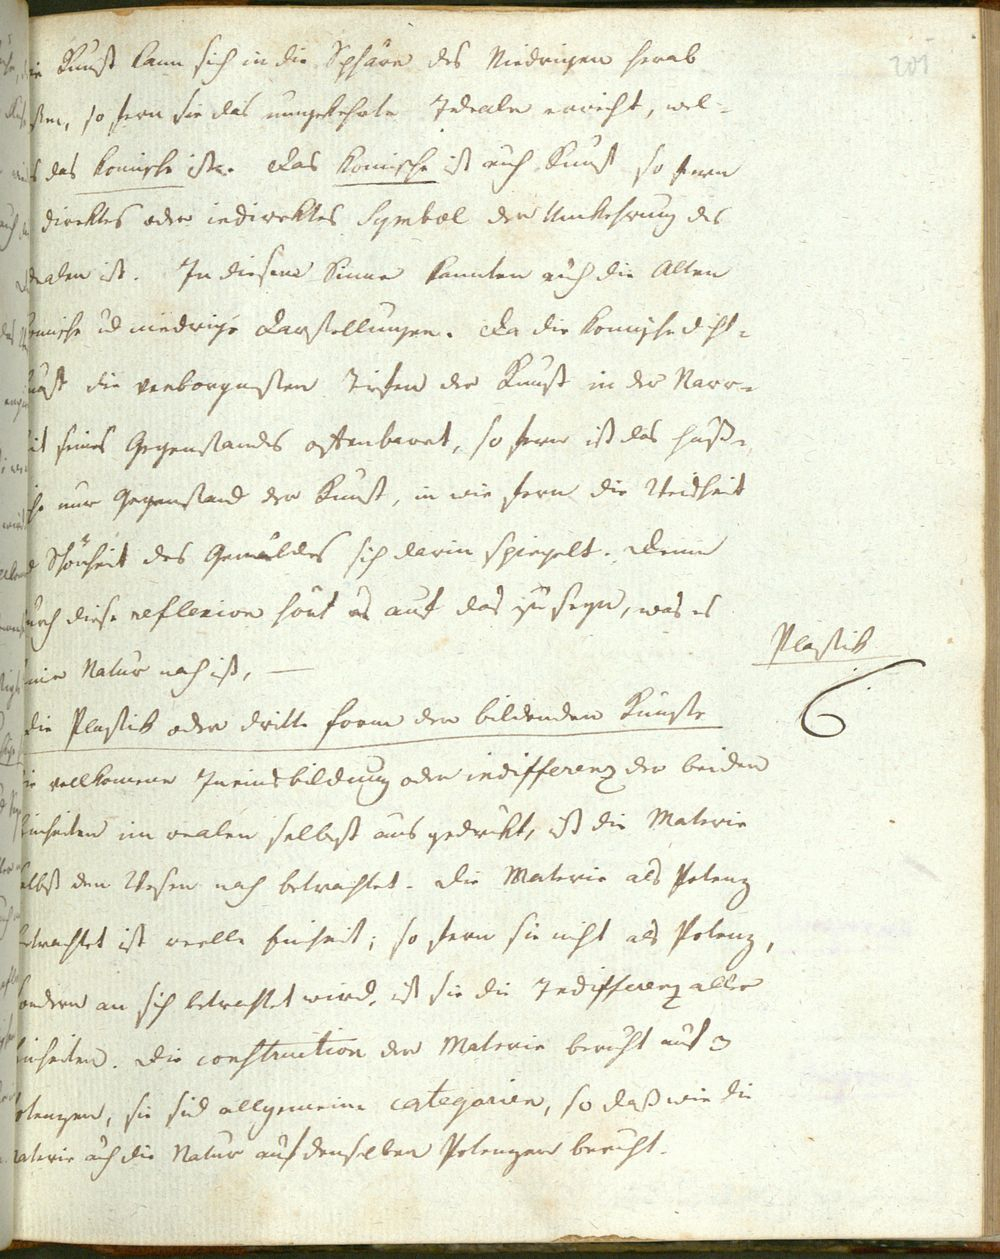 201
die Kunst kann sich in die Sphäre des Niedrigen herab
so fern sie das umgekehrte Ideale erreicht, wel-
das Komische ist. Das Komische ist auch Kunst so fern
direktes oder indirektes Symbol der Umkehrung des
Idealen ist. In diesem Sinne kannten auch die Alten
komische und niedrige Darstellungen. Da die komische Dicht-
kunst die verborgensten Tiefen der Kunst in der Narr-
heit seines Gegenstands offenbaret, so fern ist das Häß-
liche nur Gegenstand der Kunst, in wie fern die
und Schönheit des Gemäldes sich darin spiegelt. Denn
durch diese reflexion hört es auf das zu seyn, was es
seiner Natur nach ist, —
Plastik
die Plastik oder dritte Form der bildenden Künste
die vollkomene Ineinsbildung oder indifferenz der beiden
Einheiten im realen selbst ausgedrükt, ist die Materie
selbst dem Wesen nach betrachtet. Die Materie als Potenz
betrachtet ist reelle Einheit; so fern sie nicht als Potenz,
sondern an sich betrachtet wird, ist sie die Indifferenz aller
Einheiten. Die construction der Materie beruht auf 3
Potenzen, sie sind allgemeine categorien, so daß wie die
Materie auch die Natur auf denselben Potenzen beruht.